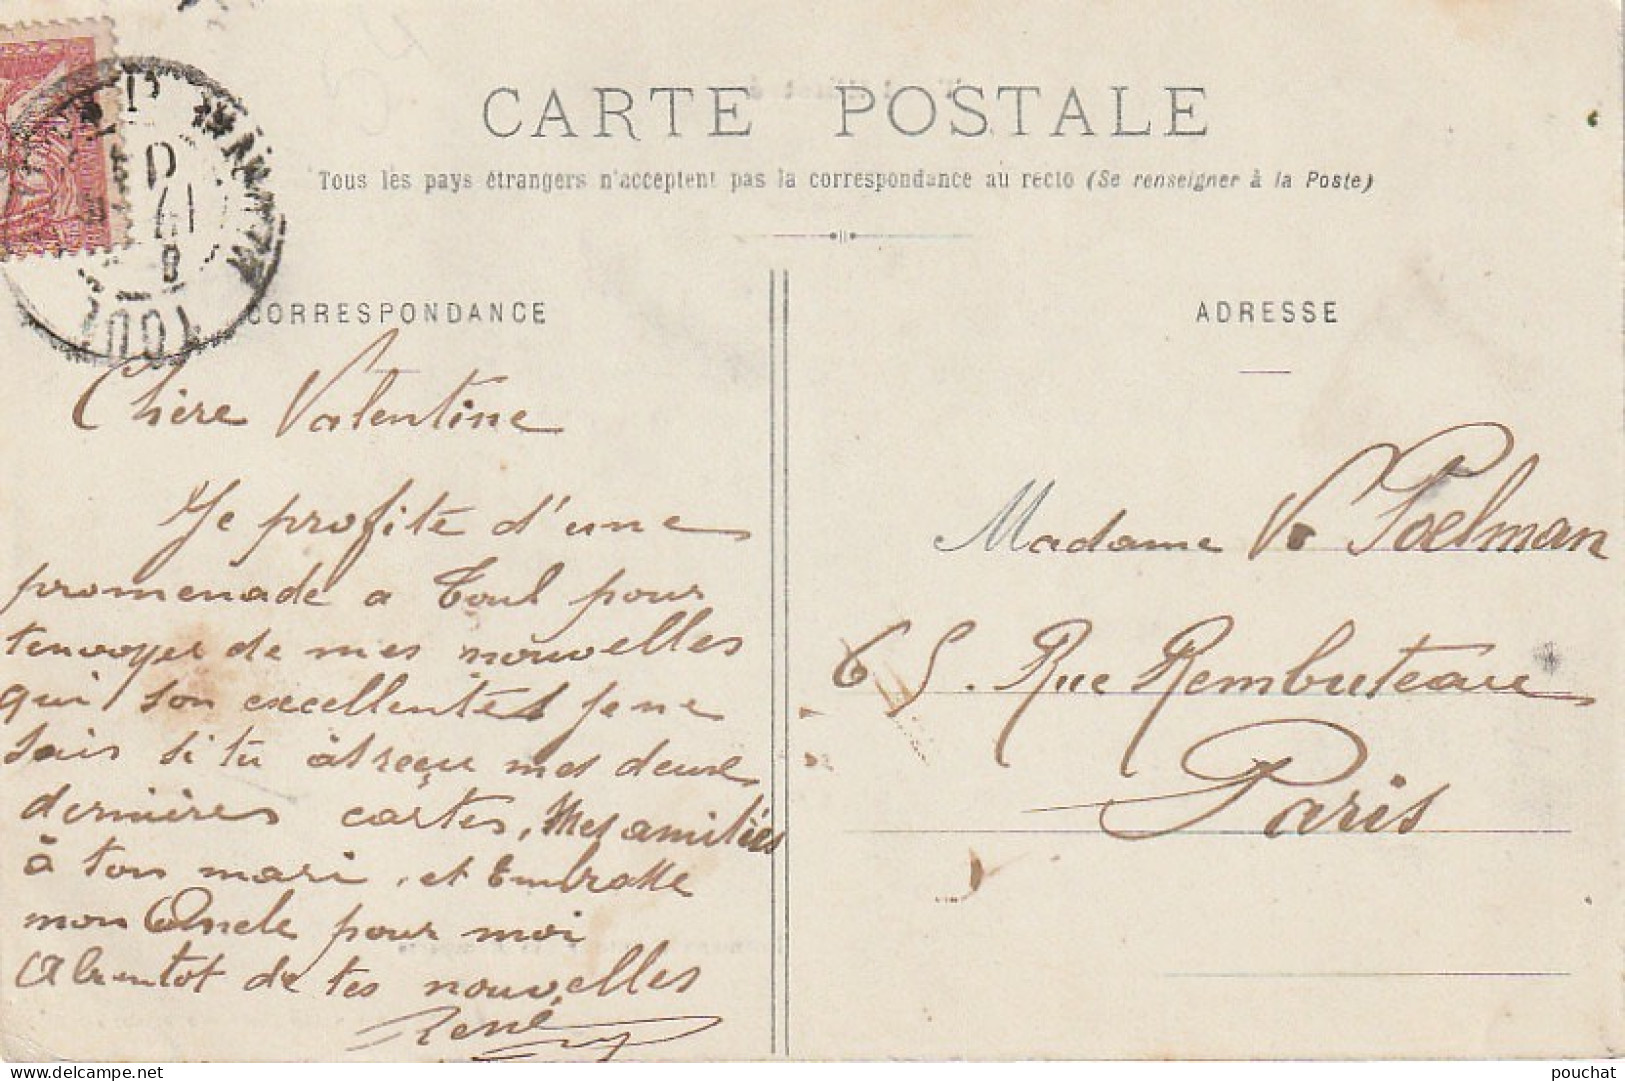 CARTE POSTALE
Tous les pays étrangers n'acceptent pas la correspondance au recto (Se renseigner à la Poste)
CORRESPONDANCE
Chère Valentine
Je profite d'une
promenade a Toul pour
t'envoyer de mes nouvelles
qui son excellentes je ne
sais si tu às reçu mes deux
dernières cartes, Mes amitiés
à ton mari, et Embrasse
mon Oncle pour moi
A bientot de tes nouvelles
René
ADRESSE
Madame Poelman
65. Rue Rembuteau
Paris
TOUL
pouchat